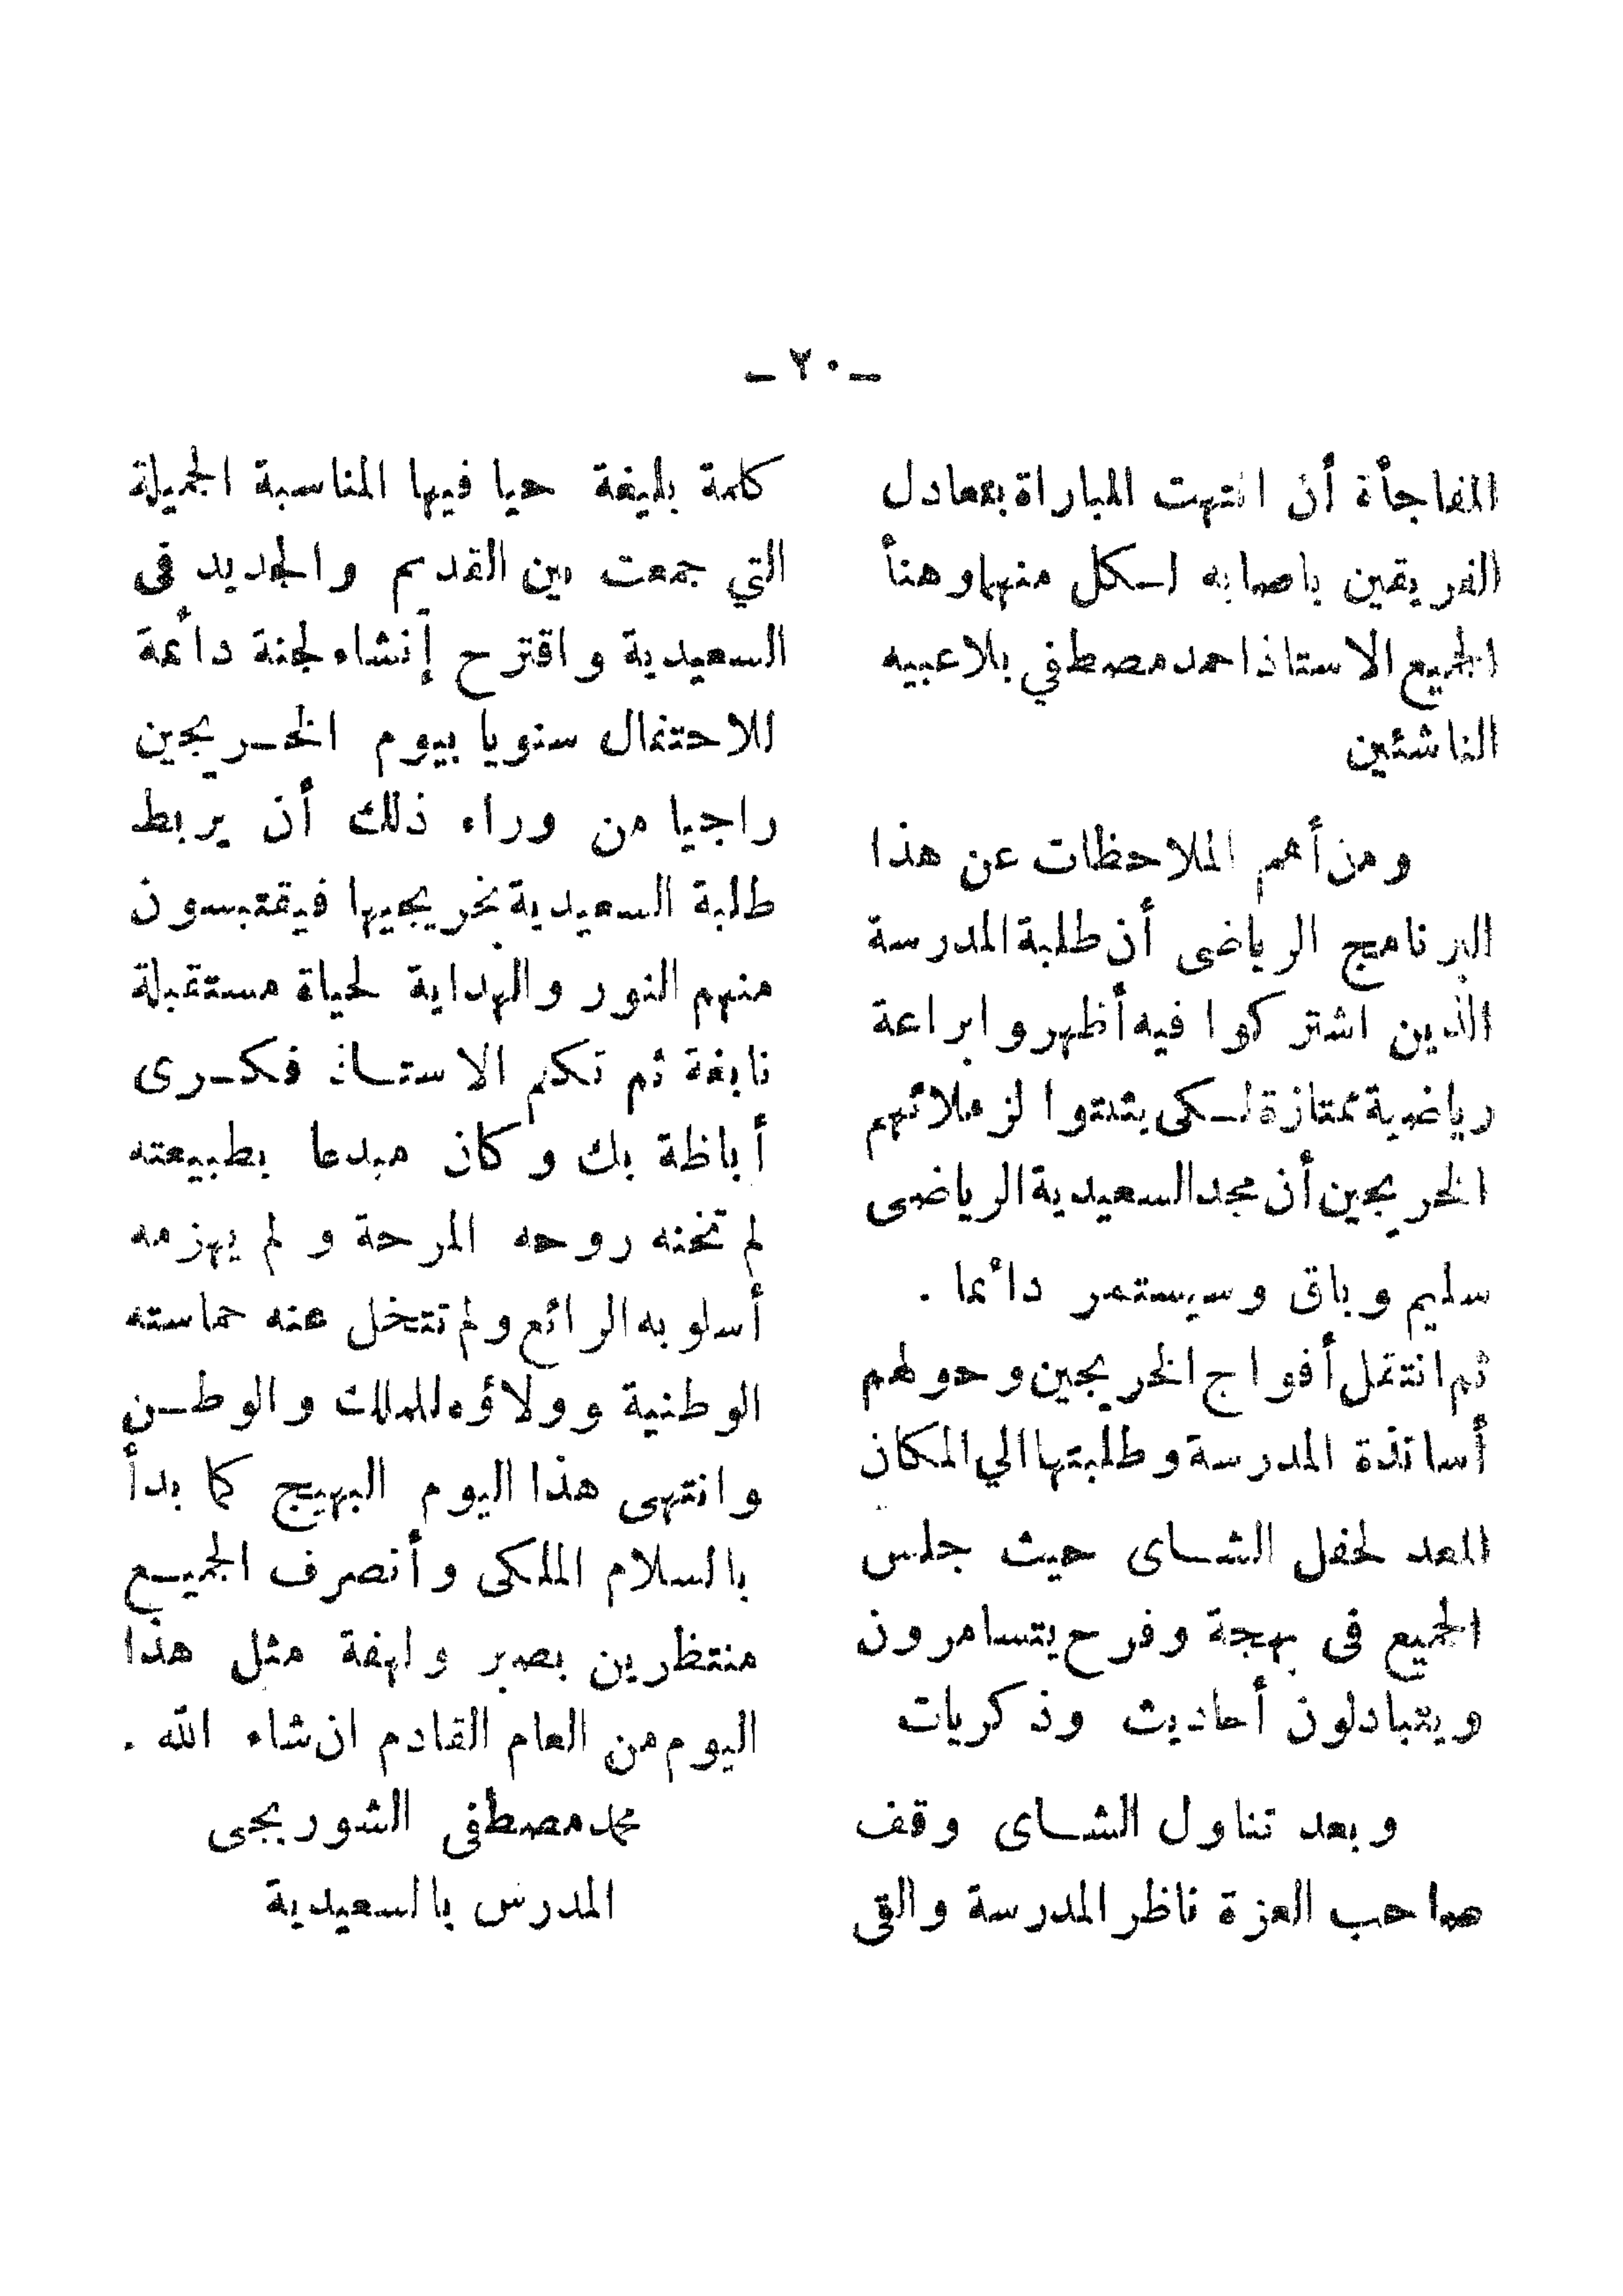 ـ ٢٠ ـ
المفاجأة أن انتهت المباراة بتعادل
الفريقين باصابه لـكل منهما وهنأ
الجميع الاستاذ احمد مصطفي بلاعبيه
الناشئين
ومن أهم الملاحظات عن هذا
البرنامج الرياضى أن طلبة المدرسة
الذين اشتركوا فيه أظهروا براعة
رياضية ممتازة لـكى يثبتوا لزملائهم
الخريجين أن مجد السعيدية الرياضى
سليم وباق وسيستمر دائما .
ثم انتقل أفواج الخريجين وحولهم
أساتذة المدرسة وطلبتها الي المكان
المعد لحفل الشـاى حيث جلس
الجميع فى بهجة وفرح يتسامرون
ويتبادلون أحاديث وذكريات
وبعد تناول الشـاى وقف
صاحب العزة ناظر المدرسة والقى
كلمة بليغة حيا فيها المناسبة الجميلة
التي جمعت بين القديم والجديد فى
السعيدية واقترح إنشاء لجنة دائمة
للاحتفال سنويا بيوم الخـريجين
راجيا من وراء ذلك أن يربط
طلبة السعيدية بخريجيها فيقتبسون
منهم النور والهداية لحياة مستقبلة
نابغة ثم تكلم الاستـاذ فكـرى
أباظة بك وكان مبدعا بطبيعته
لم تخنه روحه المرحة و لم يهزمه
أسلوبه الرائع ولم تتخل عنه حماسته
الوطنية وولاؤه للملك والوطـن
وانتهى هذا اليوم البهيج كما بدأ
بالسلام الملكى وأنصرف الجميـع
منتظرين بصبر ولهفة مثل هذا
اليوم من العام القادم ان شاء الله .
محمد مصطفى الشوربجى
المدرس بالسعيدية